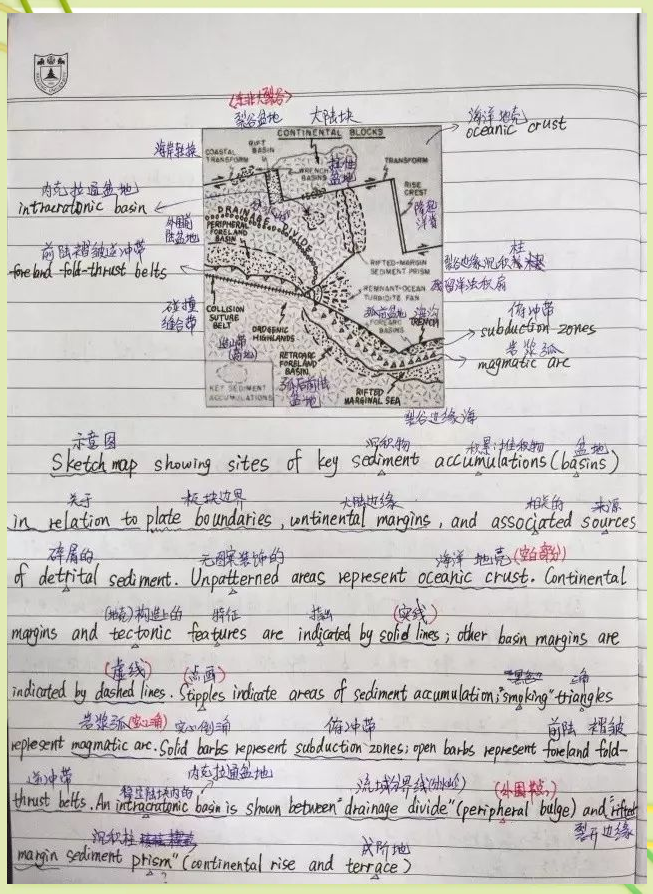 (东非大裂谷)
裂谷盆地 大陆块
CONTINENTAL BLOCKS
海洋地壳
oceanic crust
海岸转换
COASTAL TRANSFORM
RIFT BASIN
WRENCH BASINS
盆地
TRANSFORM
RISE CREST
内克拉通盆地
intracratonic basin
DRAINAGE DIVIDE
PERIPHERAL FORELAND BASIN
外围前陆盆地
前陆褶皱逆冲带
foreland fold-thrust belts
RIFTED-MARGIN SEDIMENT PRISM
REMNANT-OCEAN TURBIDITE FAN
碰撞缝合带
COLLISION SUTURE BELT
OROGENIC HIGHLANDS
造山带(高地)
弧前盆地
FOREARC BASINS
海沟
TRENCH
俯冲带
subduction zones
岩浆弧
magmatic arc
RETROARC FORELAND BASIN
弧后前陆盆地
KEY SEDIMENT ACCUMULATIONS
RIFTED MARGINAL SEA
裂谷边缘海
示意图 沉积物 积累;堆积物 盆地
Sketch map showing sites of key sediment accumulations (basins)
关于 板块边界 大陆边缘 相关的 来源
in relation to plate boundaries, continental margins, and associated sources
碎屑的 无图案装饰的 海洋地壳(空白部分)
of detrital sediment. Unpatterned areas represent oceanic crust. Continental
(地壳)构造上的 特征 指出 (实线)
margins and tectonic features are indicated by solid lines; other basin margins are
(虚线) (点画)
indicated by dashed lines. Stipples indicate areas of sediment; accumulation; "smoking" triangles
岩浆弧(空心三角) 俯冲带 前陆 褶皱
represent magmatic arc. Solid barbs represent subduction zones; open barbs represent foreland fold-
逆冲带 内克拉通盆地 流域分界线(分水岭)
thrust belts. An intracratonic basin is shown between "drainage divide" (peripheral bulge) and "rifted
沉积柱 阶地 裂开边缘
margin sediment prism" (continental rise and terrace)